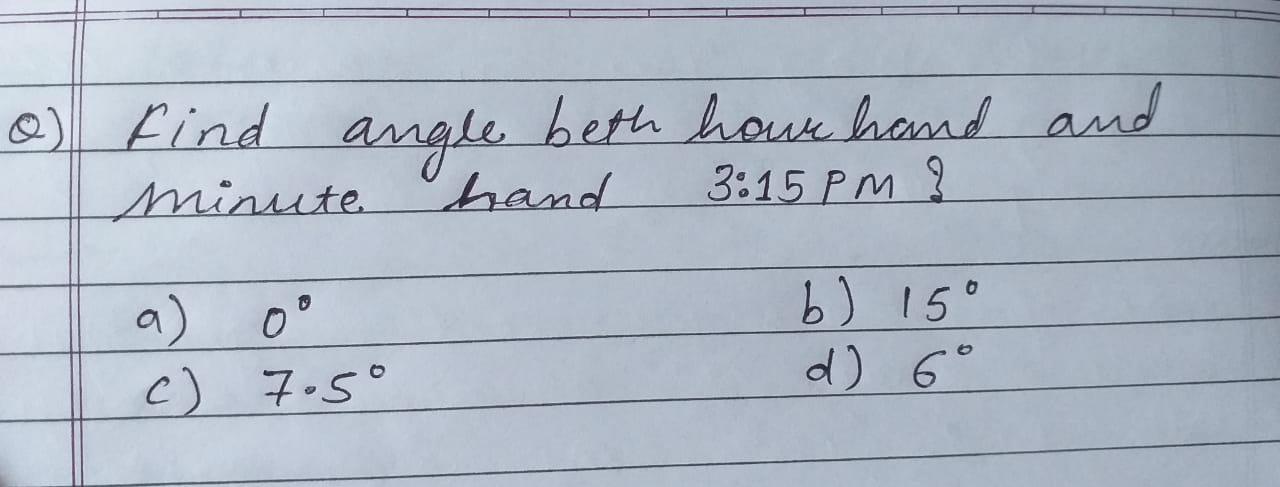 Q) Find angle betn hour hand and
minute hand 3:15 PM ?
a) 0° b) 15°
c) 7.5° d) 6°